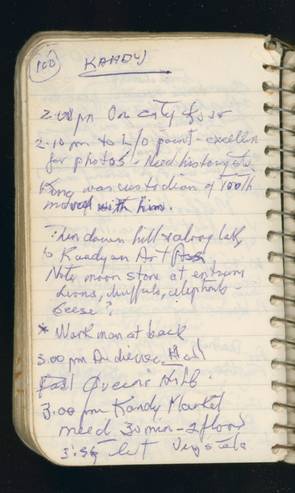 100
KANDY
2.00 pm On city tour
2.10 pm to L/O point - excellent
for photos - Need history etc
King was custodian of Tooth
moved with him.
Then down hill & along lake
to Kandyan Art Assn
Note moon stone at entrance
Lions, buffalo, elephants
Geese?
* Workman at back
3.00 pm Audience Hall
Queen's
3.00 pm Kandy Market
need 30 min - 2 floors
3.55 left